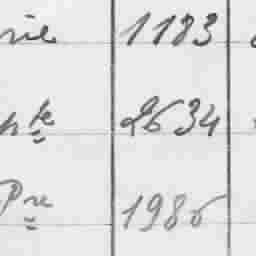 rie 1183
nk 2634
Pre 1986